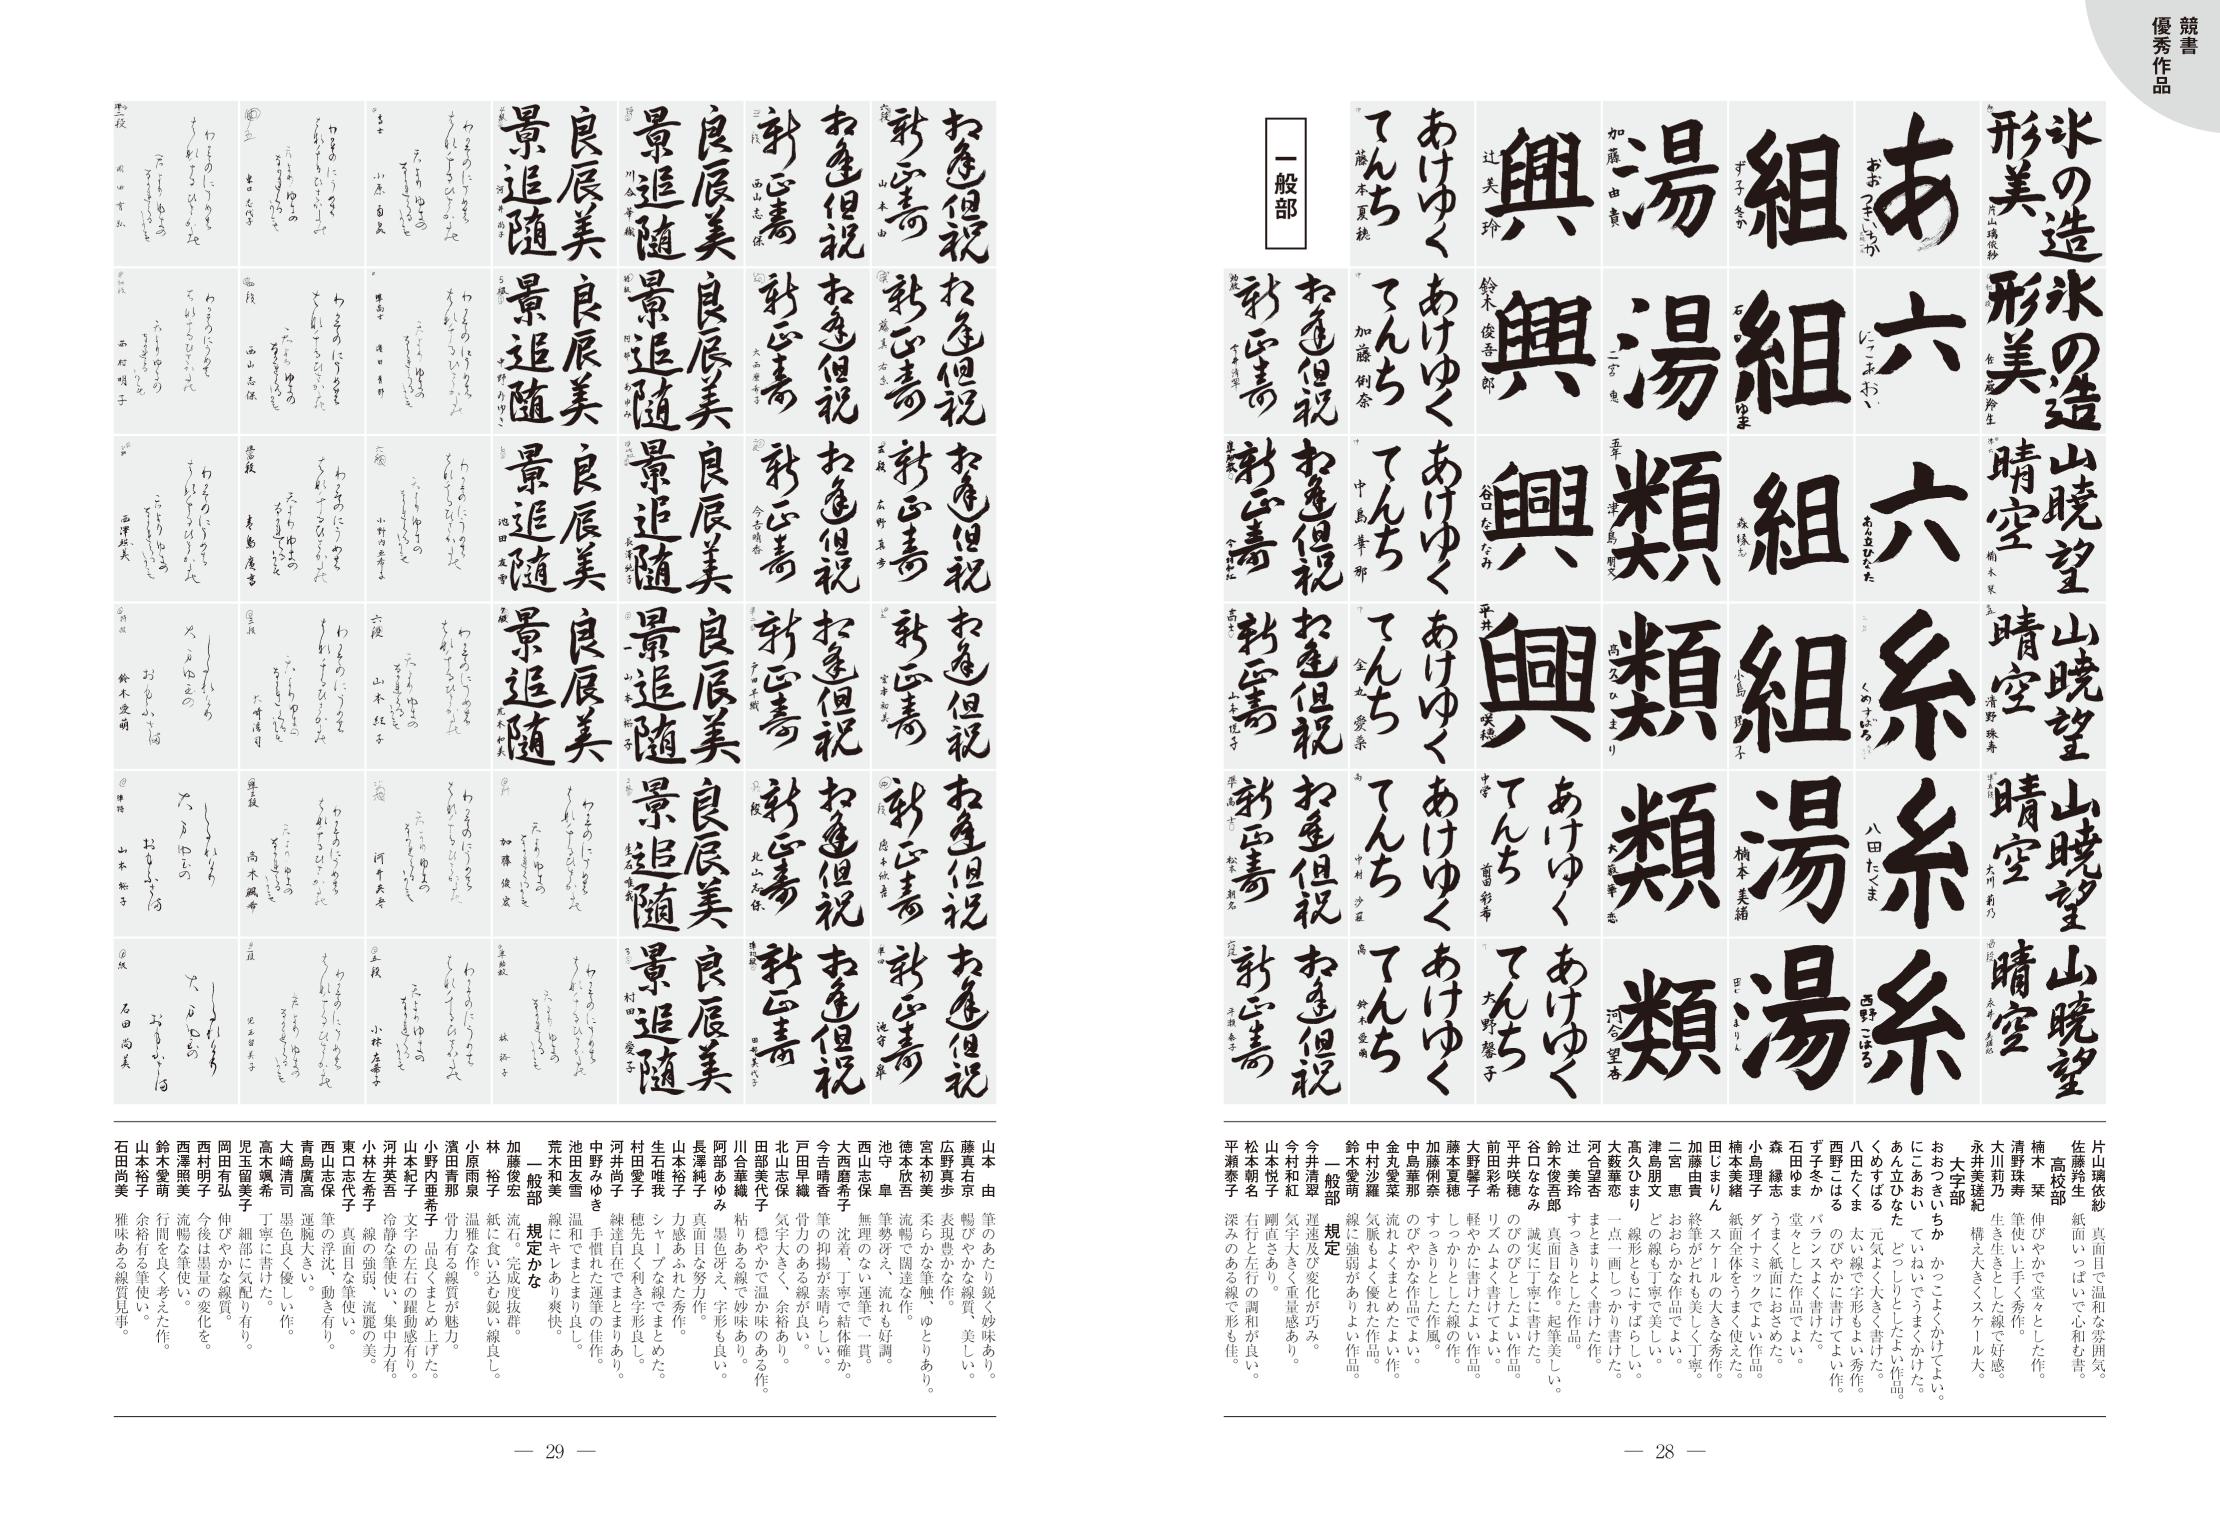 競書
優秀作品
氷の造
形美
片山瑞依紗
氷の造
形美
佐藤羚生
山暁望
晴空
楠木栞
山暁望
晴空
清野珠寿
山暁望
晴空
大川莉乃
山暁望
晴空
あ
おおつきいちか
六
にこあおい
六
あん立ひなた
糸
くめすばる
糸
八田たくま
糸
西野こはる
組
ず子冬か
組
石田ゆま
組
森縁志
組
小島理子
湯
楠本美緒
湯
田じまりん
湯
加藤由貴
湯
二宮恵
類
五年
津島朋文
類
高久ひまり
類
大薮華恋
類
河合望杏
興
辻美玲
興
鈴木俊吾郎
興
谷口ななみ
興
平井咲穂
あけゆく
てんち
中学
前田彩希
あけゆく
てんち
大野馨子
あけゆく
てんち
藤本夏穂
あけゆく
てんち
加藤俐奈
あけゆく
てんち
中島華那
あけゆく
てんち
金丸愛菜
あけゆく
てんち
中村沙羅
あけゆく
てんち
鈴木愛萌
一般部
相逢但祝
新正寿
今井清翠
相逢但祝
新正寿
今村和紅
相逢但祝
新正寿
山本悦子
相逢但祝
新正寿
松本朝名
相逢但祝
新正寿
平瀬泰子
片山瑞依紗 真面目で温和な雰囲気。
佐藤羚生 紙面いっぱいで心和む書。
高校部
楠木 栞 伸びやかで堂々とした作。
清野珠寿 筆使い上手く秀作。
大川莉乃 生き生きとした線で好感。
永井美瑳紀 構え大きくスケール大。
大字部
おおつきいちか かっこよくかけてよい。
にこあおい ていねいでうまくかけた。
あん立ひなた どっしりとしたよい作品。
くめすばる 元気よく大きく書けた。
八田たくま 太い線で字形もよい秀作。
西野こはる のびやかに書けてよい作。
ず子冬か バランスよく書けた。
石田ゆま 堂々とした作品でよい。
森 縁志 うまく紙面におさめた。
小島理子 ダイナミックでよい作品。
楠本美緒 紙面全体をうまく使えた。
田じまりん スケールの大きな秀作。
加藤由貴 終筆がどれも美しく丁寧。
二宮 恵 おおらかな作品でよい。
津島朋文 どの線も丁寧で美しい。
髙久ひまり 線形ともにすばらしい。
大薮華恋 一点一画しっかり書けた。
河合望杏 まとまりよく書けた作。
辻 美玲 すっきりとした作品。
鈴木俊吾郎 真面目な作。起筆美しい。
谷口ななみ 誠実に丁寧に書けた。
平井咲穂 のびのびとしたよい作品。
前田彩希 リズムよく書けてよい。
大野馨子 軽やかに書けたよい作品。
藤本夏穂 しっかりとした線の作。
加藤俐奈 すっきりとした作風。
中島華那 のびやかな作品でよい。
金丸愛菜 流れよくまとめたよい作。
中村沙羅 気脈もよく優れた作品。
鈴木愛萌 線に強弱がありよい作品。
一般部 規定
今井清翠 遅速及び変化が巧み。
今村和紅 気宇大きく重量感あり。
山本悦子 剛直さあり。
松本朝名 右行と左行の調和が良い。
平瀬泰子 深みのある線で形も佳。
— 28 —
相逢但祝
新正寿
山本由
相逢但祝
新正寿
藤真右京
相逢但祝
新正寿
広野真歩
相逢但祝
新正寿
宮本初美
相逢但祝
新正寿
徳本欣吾
相逢但祝
新正寿
池守皐
相逢但祝
新正寿
西山志保
相逢但祝
新正寿
大西磨希子
相逢但祝
新正寿
今吉晴香
相逢但祝
新正寿
戸田早織
相逢但祝
新正寿
北山志保
相逢但祝
新正寿
田部美代子
良辰美
景追随
川合華織
良辰美
景追随
阿部あゆみ
良辰美
景追随
長澤純子
良辰美
景追随
山本裕子
良辰美
景追随
生石唯我
良辰美
景追随
村田愛子
良辰美
景追随
河井尚子
良辰美
景追随
中野みゆき
良辰美
景追随
池田友雪
良辰美
景追随
荒木和美
加藤俊宏
林裕子
小原雨泉
濱田青那
小野内亜希子
六段
山本紀子
河井英吾
五段
小林左希子
東口志代子
西山志保
青島廣高
大﨑清司
高木颯希
児玉留美子
岡田有弘
西村明子
西澤照美
鈴木愛萌
山本裕子
石田尚美
山本 由 筆のあたり鋭く妙味あり。
藤真右京 暢びやかな線質、美しい。
広野真歩 表現豊かな作。
宮本初美 柔らかな筆触、ゆとりあり。
徳本欣吾 流暢で闊達な作。
池守 皐 筆勢冴え、流れも好調。
西山志保 無理のない運筆で一貫。
大西磨希子 沈着、丁寧で結体確か。
今吉晴香 筆の抑揚が素晴らしい。
戸田早織 骨力のある線が良い。
北山志保 気宇大きく、余裕あり。
田部美代子 穏やかで温か味のある作。
川合華織 粘りある線で妙味あり。
阿部あゆみ 墨色冴え、字形も良い。
長澤純子 真面目な努力作。
山本裕子 力感あふれた秀作。
生石唯我 シャープな線でまとめた。
村田愛子 穂先良く利き字形良し。
河井尚子 練達自在でまとまりあり。
中野みゆき 手慣れた運筆の佳作。
池田友雪 温和でまとまり良し。
荒木和美 線にキレあり爽快。
一般部 規定かな
加藤俊宏 流石。完成度抜群。
林 裕子 紙に食い込む鋭い線良し。
小原雨泉 温雅な作。
濱田青那 骨力有る線質が魅力。
小野内亜希子 品良くまとめ上げた。
山本紀子 文字の左右の躍動感有り。
河井英吾 冷静な筆使い、集中力有。
小林左希子 線の強弱、流麗の美。
東口志代子 真面目な筆使い。
西山志保 筆の浮沈、動き有り。
青島廣高 運腕大きい。
大﨑清司 墨色良く優しい作。
高木颯希 丁寧に書けた。
児玉留美子 細部に気配り有り。
岡田有弘 伸びやかな線質。
西村明子 今後は墨量の変化を。
西澤照美 流暢な筆使い。
鈴木愛萌 行間を良く考えた作。
山本裕子 余裕有る筆使い。
石田尚美 雅味ある線質見事。
— 29 —